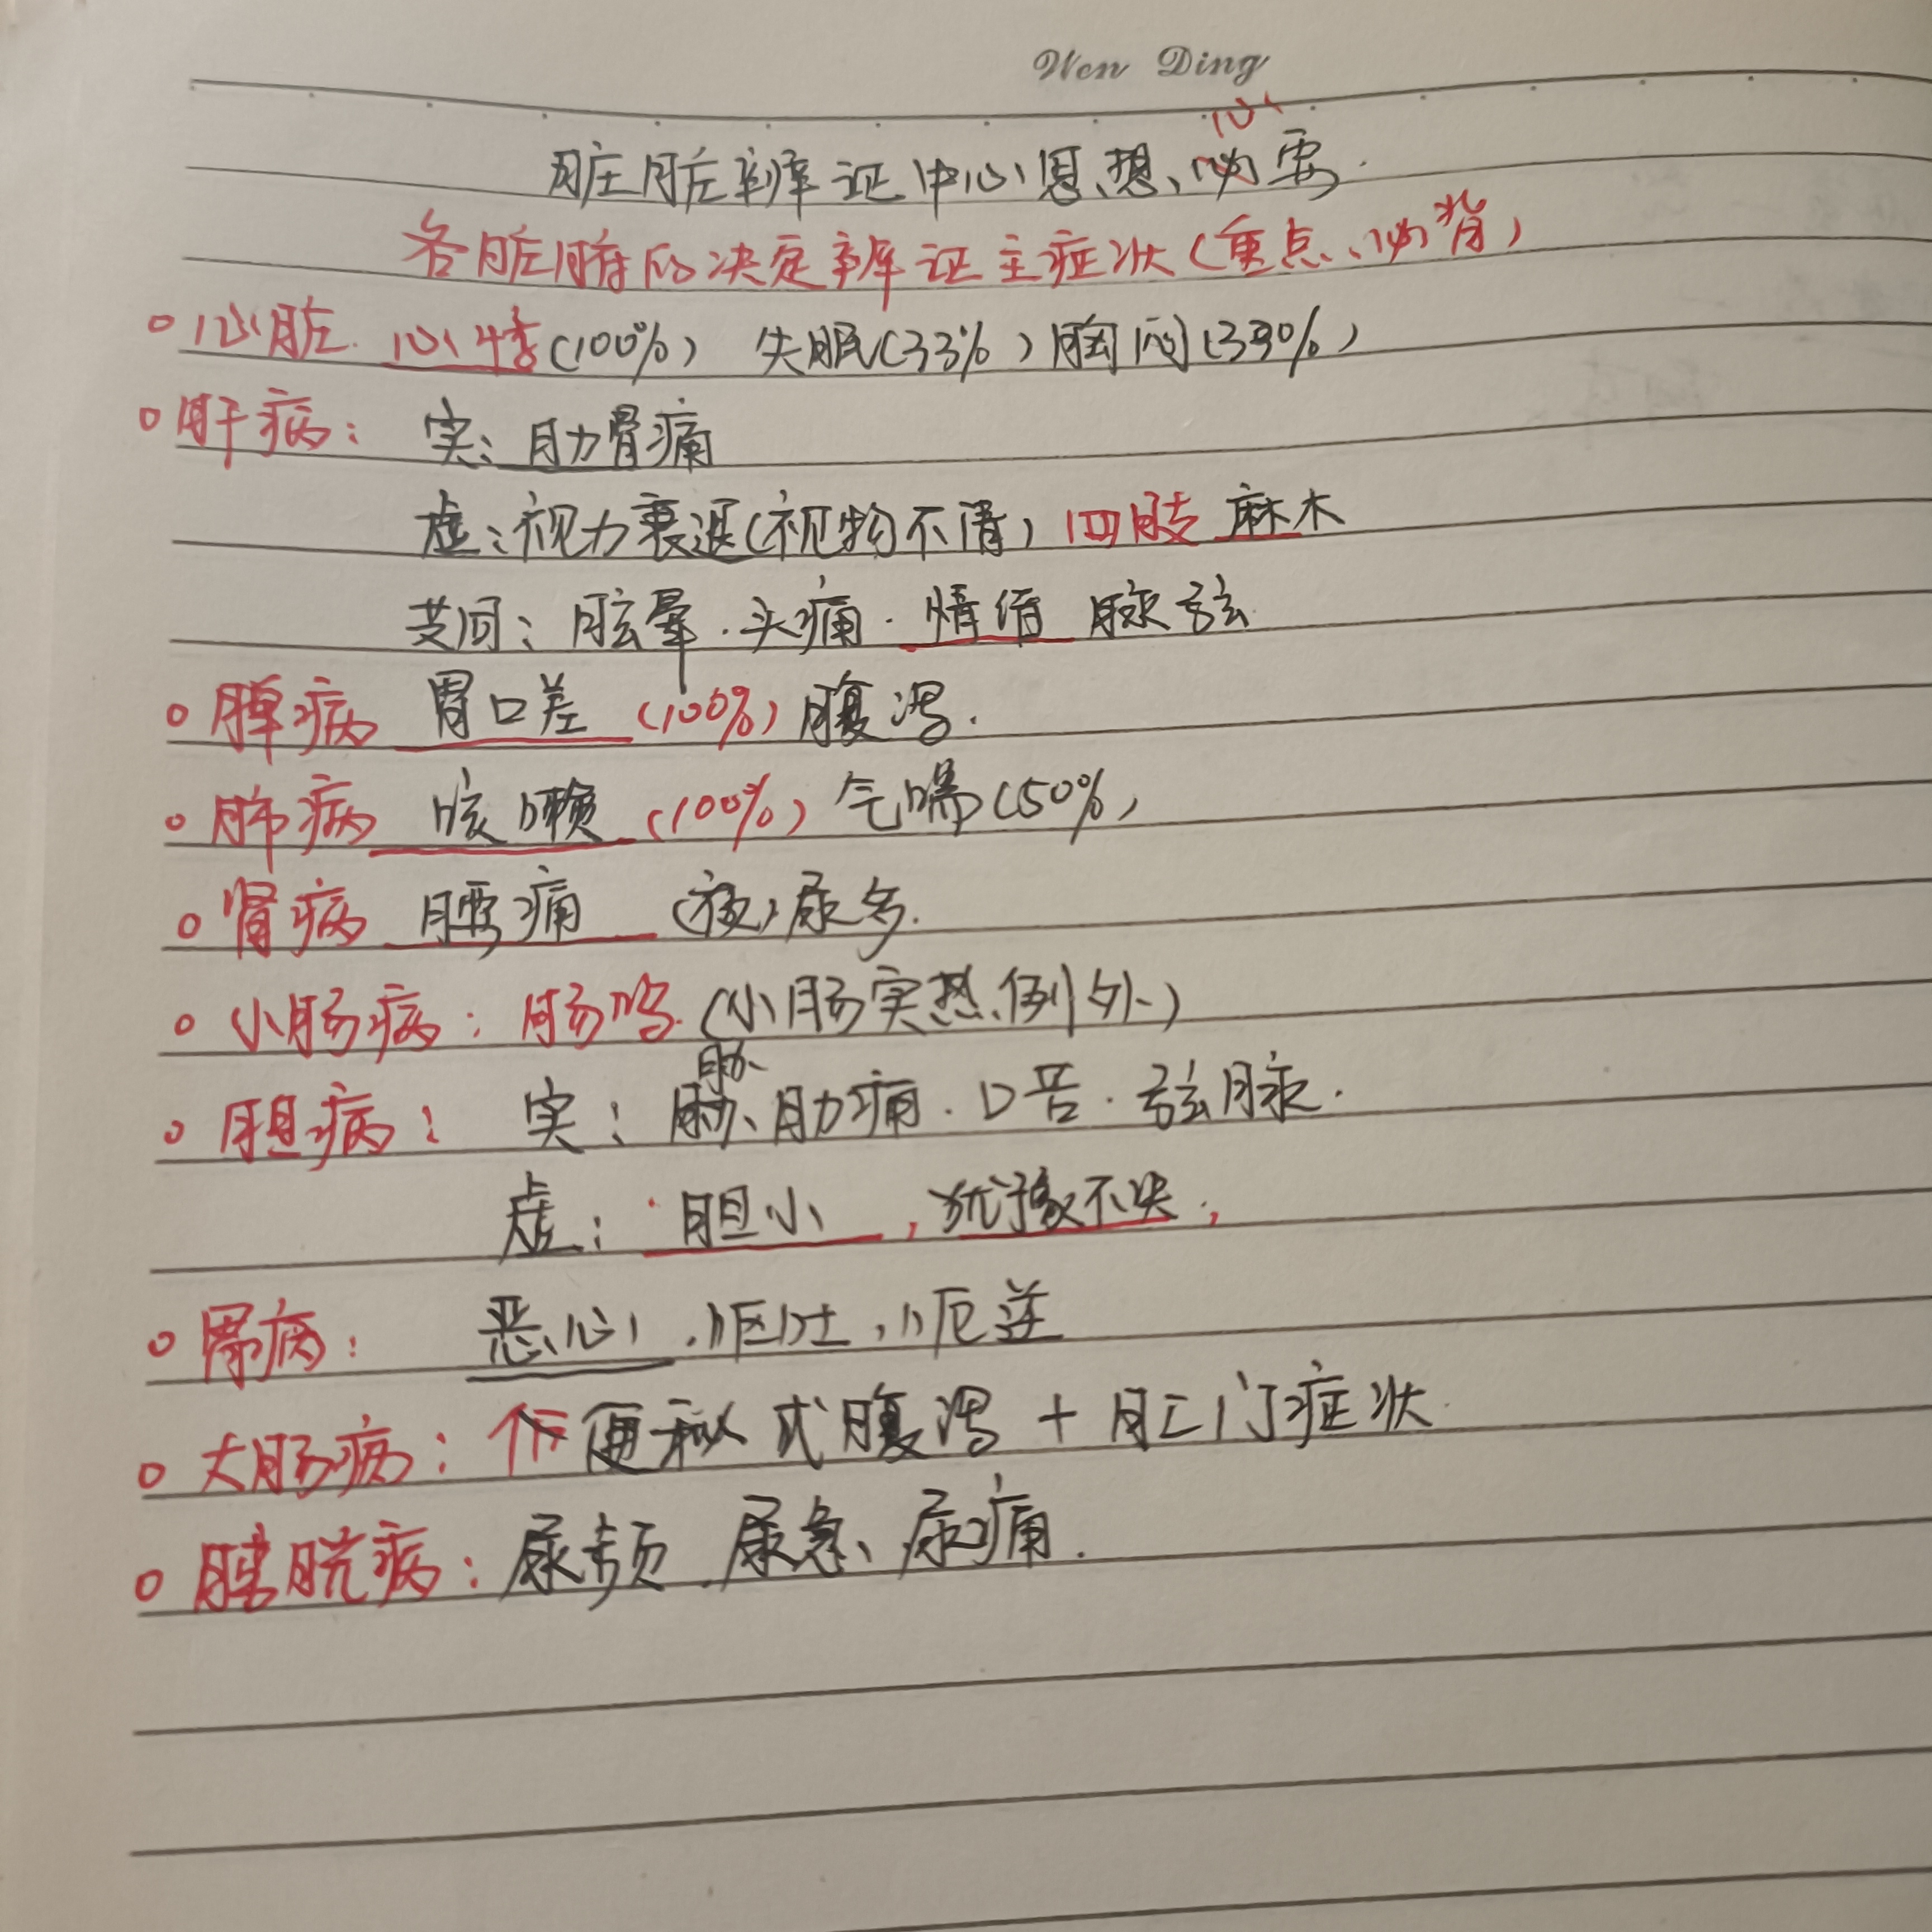 Wen Ding
脏脏辨证中心思想、必要.
心
各脏腑的决定辨证主症状(重点、必背)
心脏. 心悸(100%) 失眠(33%)胸闷(33%)
肝病: 实: 肋骨痛
虚:视力衰退(视物不清)四肢 麻木
共同: 眩晕.头痛.情绪 脉弦
脾病 胃口差(100%)腹泻.
肺病 咳嗽(100%)气喘(50%)
肾病 腰痛 (夜)尿多.
小肠病: 肠鸣.(小肠实热例外)
胁
胆病: 实: 肋痛.口苦.弦脉.
虚: 胆小,犹豫不决,
胃病: 恶心,呕吐,呃逆
大肠病: 便秘或腹泻 + 肛门症状.
膀胱病: 尿频、尿急、尿痛.